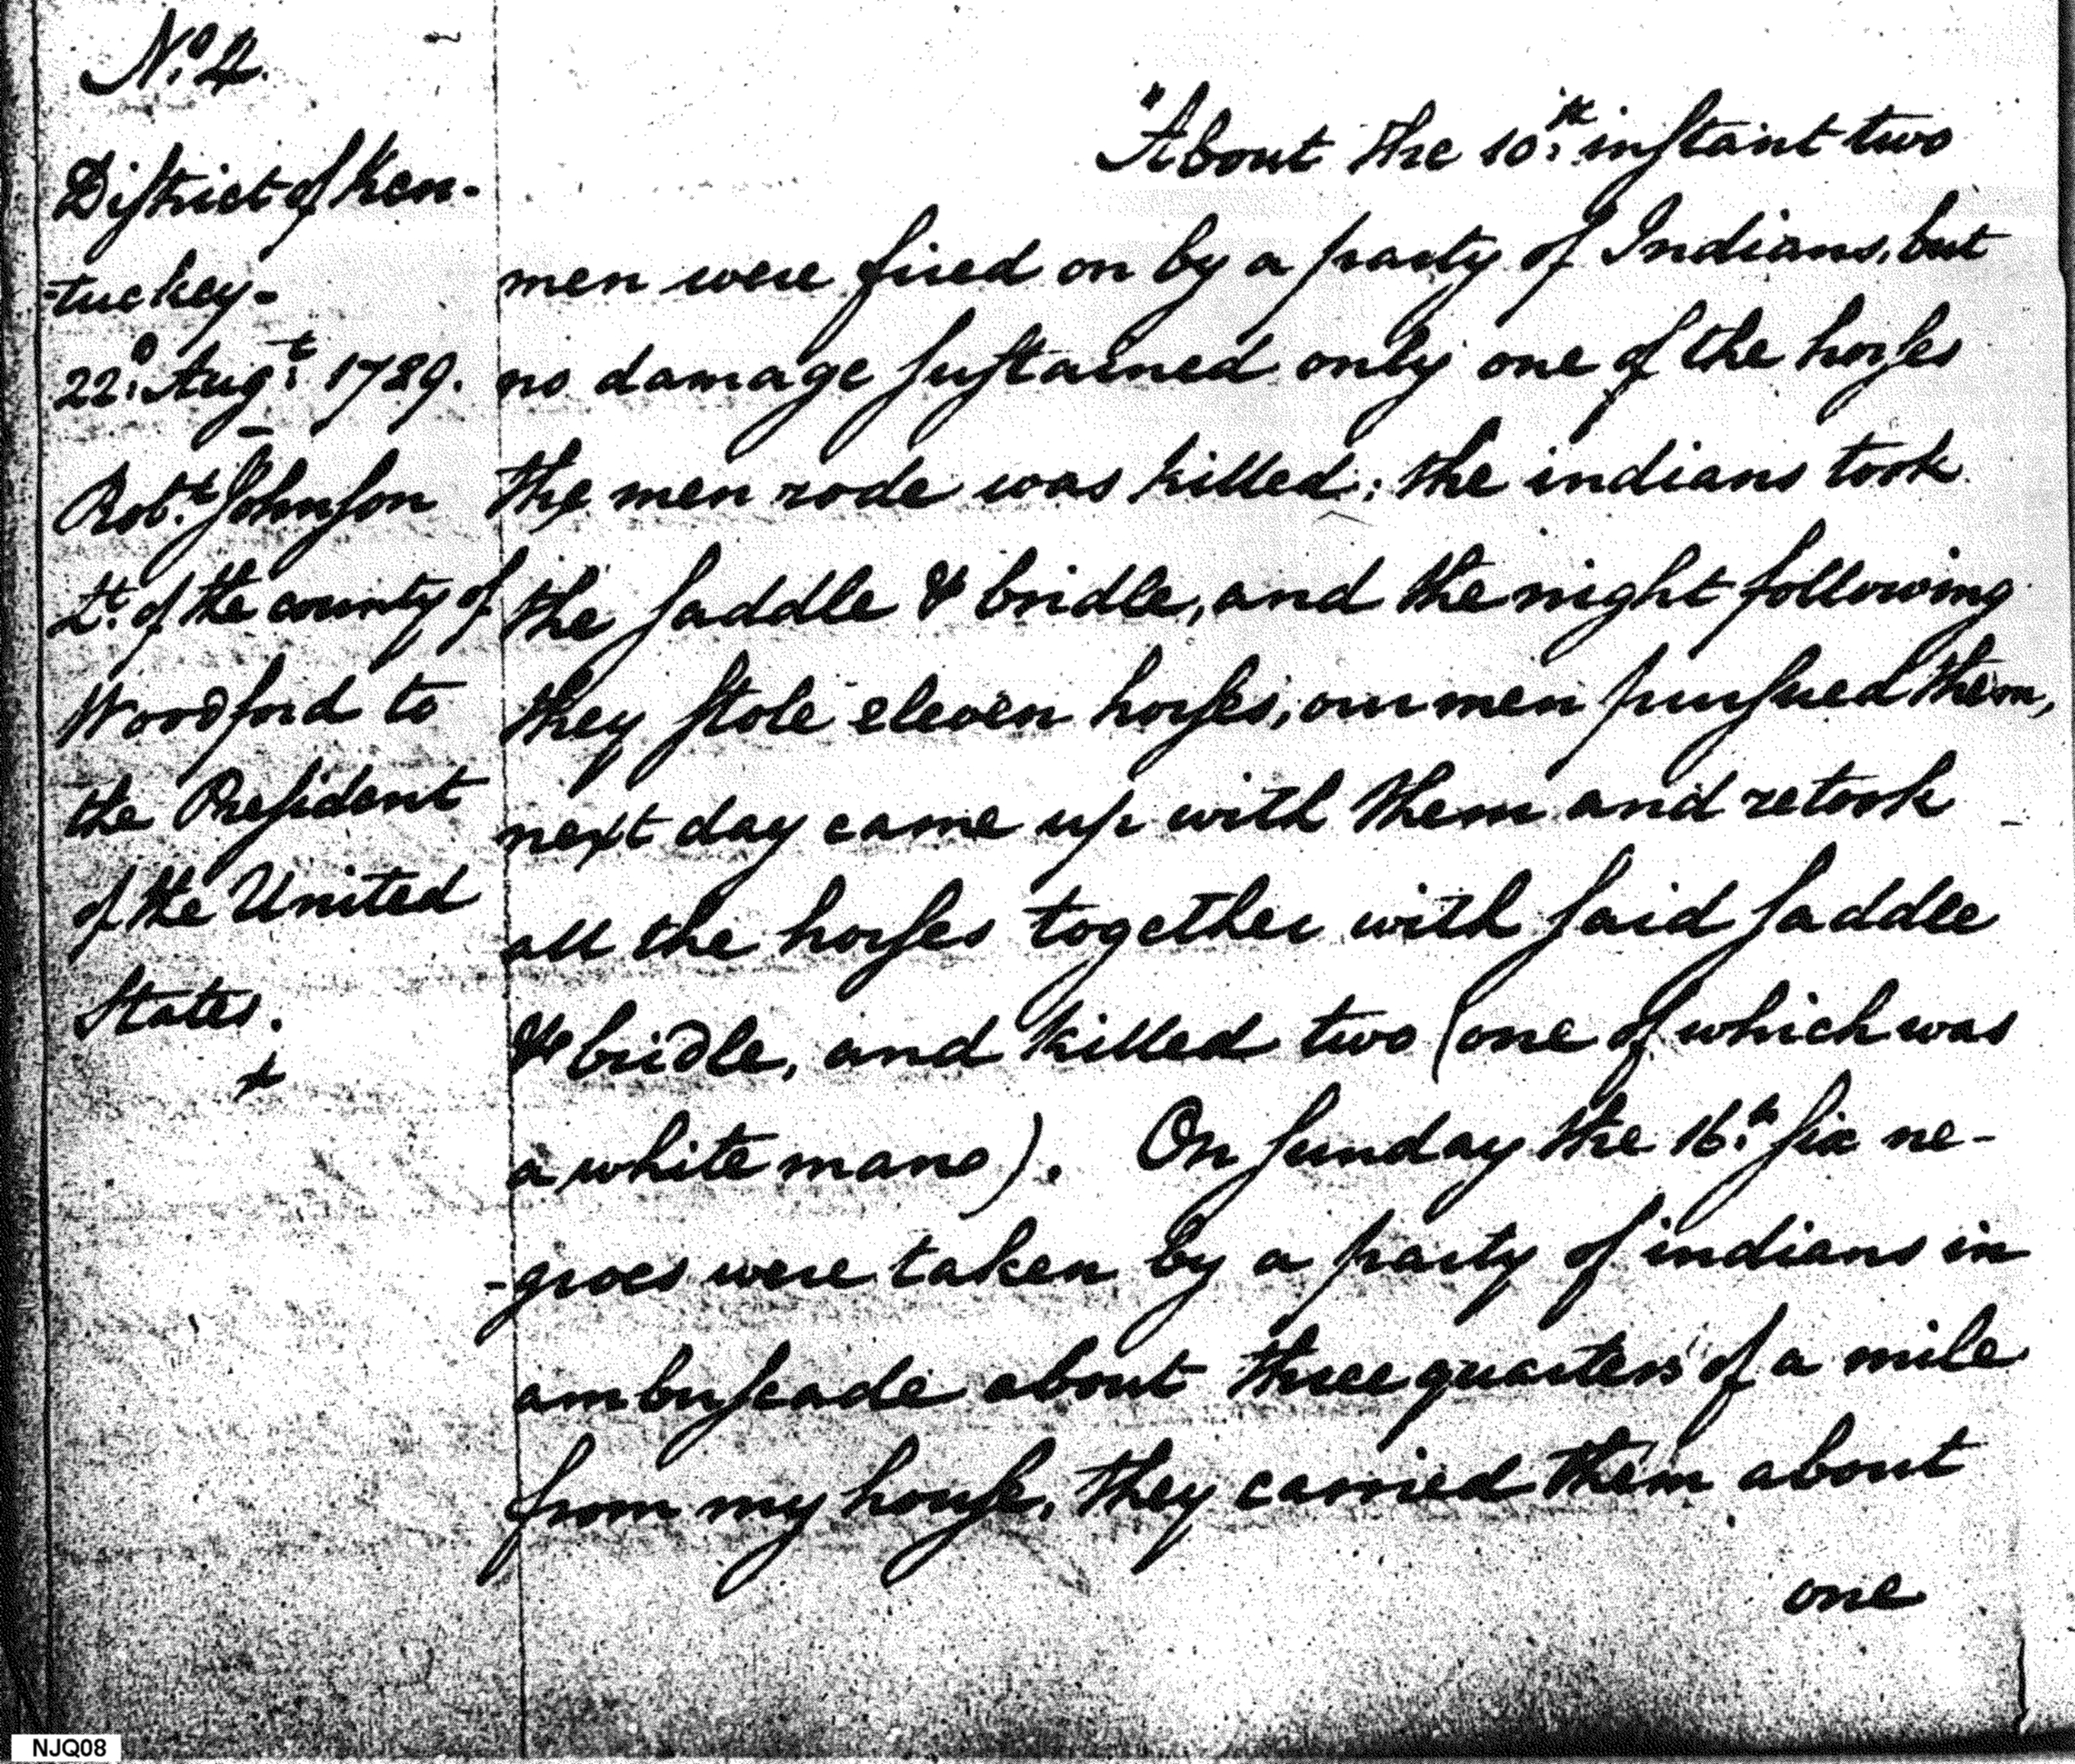 No. 4.
District of Ken-
-tuckey-
22d. Augt. 1789.
Robt. Johnson
Lt. of the county of
Woodford to
the President
of the United
States.
"About the 10th. instant two
men were fired on by a party of Indians, but
no damage sustained only one of the horses
the men rode was killed; the indians took
the saddle & bridle, and the night following
they stole eleven horses, our men pursued them,
next day came up with them and retook
all the horses together with said saddle
& bridle, and killed two (one of which was
a white man). On sunday the 16th. six ne-
-groes were taken by a party of indians in
ambuscade about three quarters of a mile
from my house, they carried them about
one
NJQ08